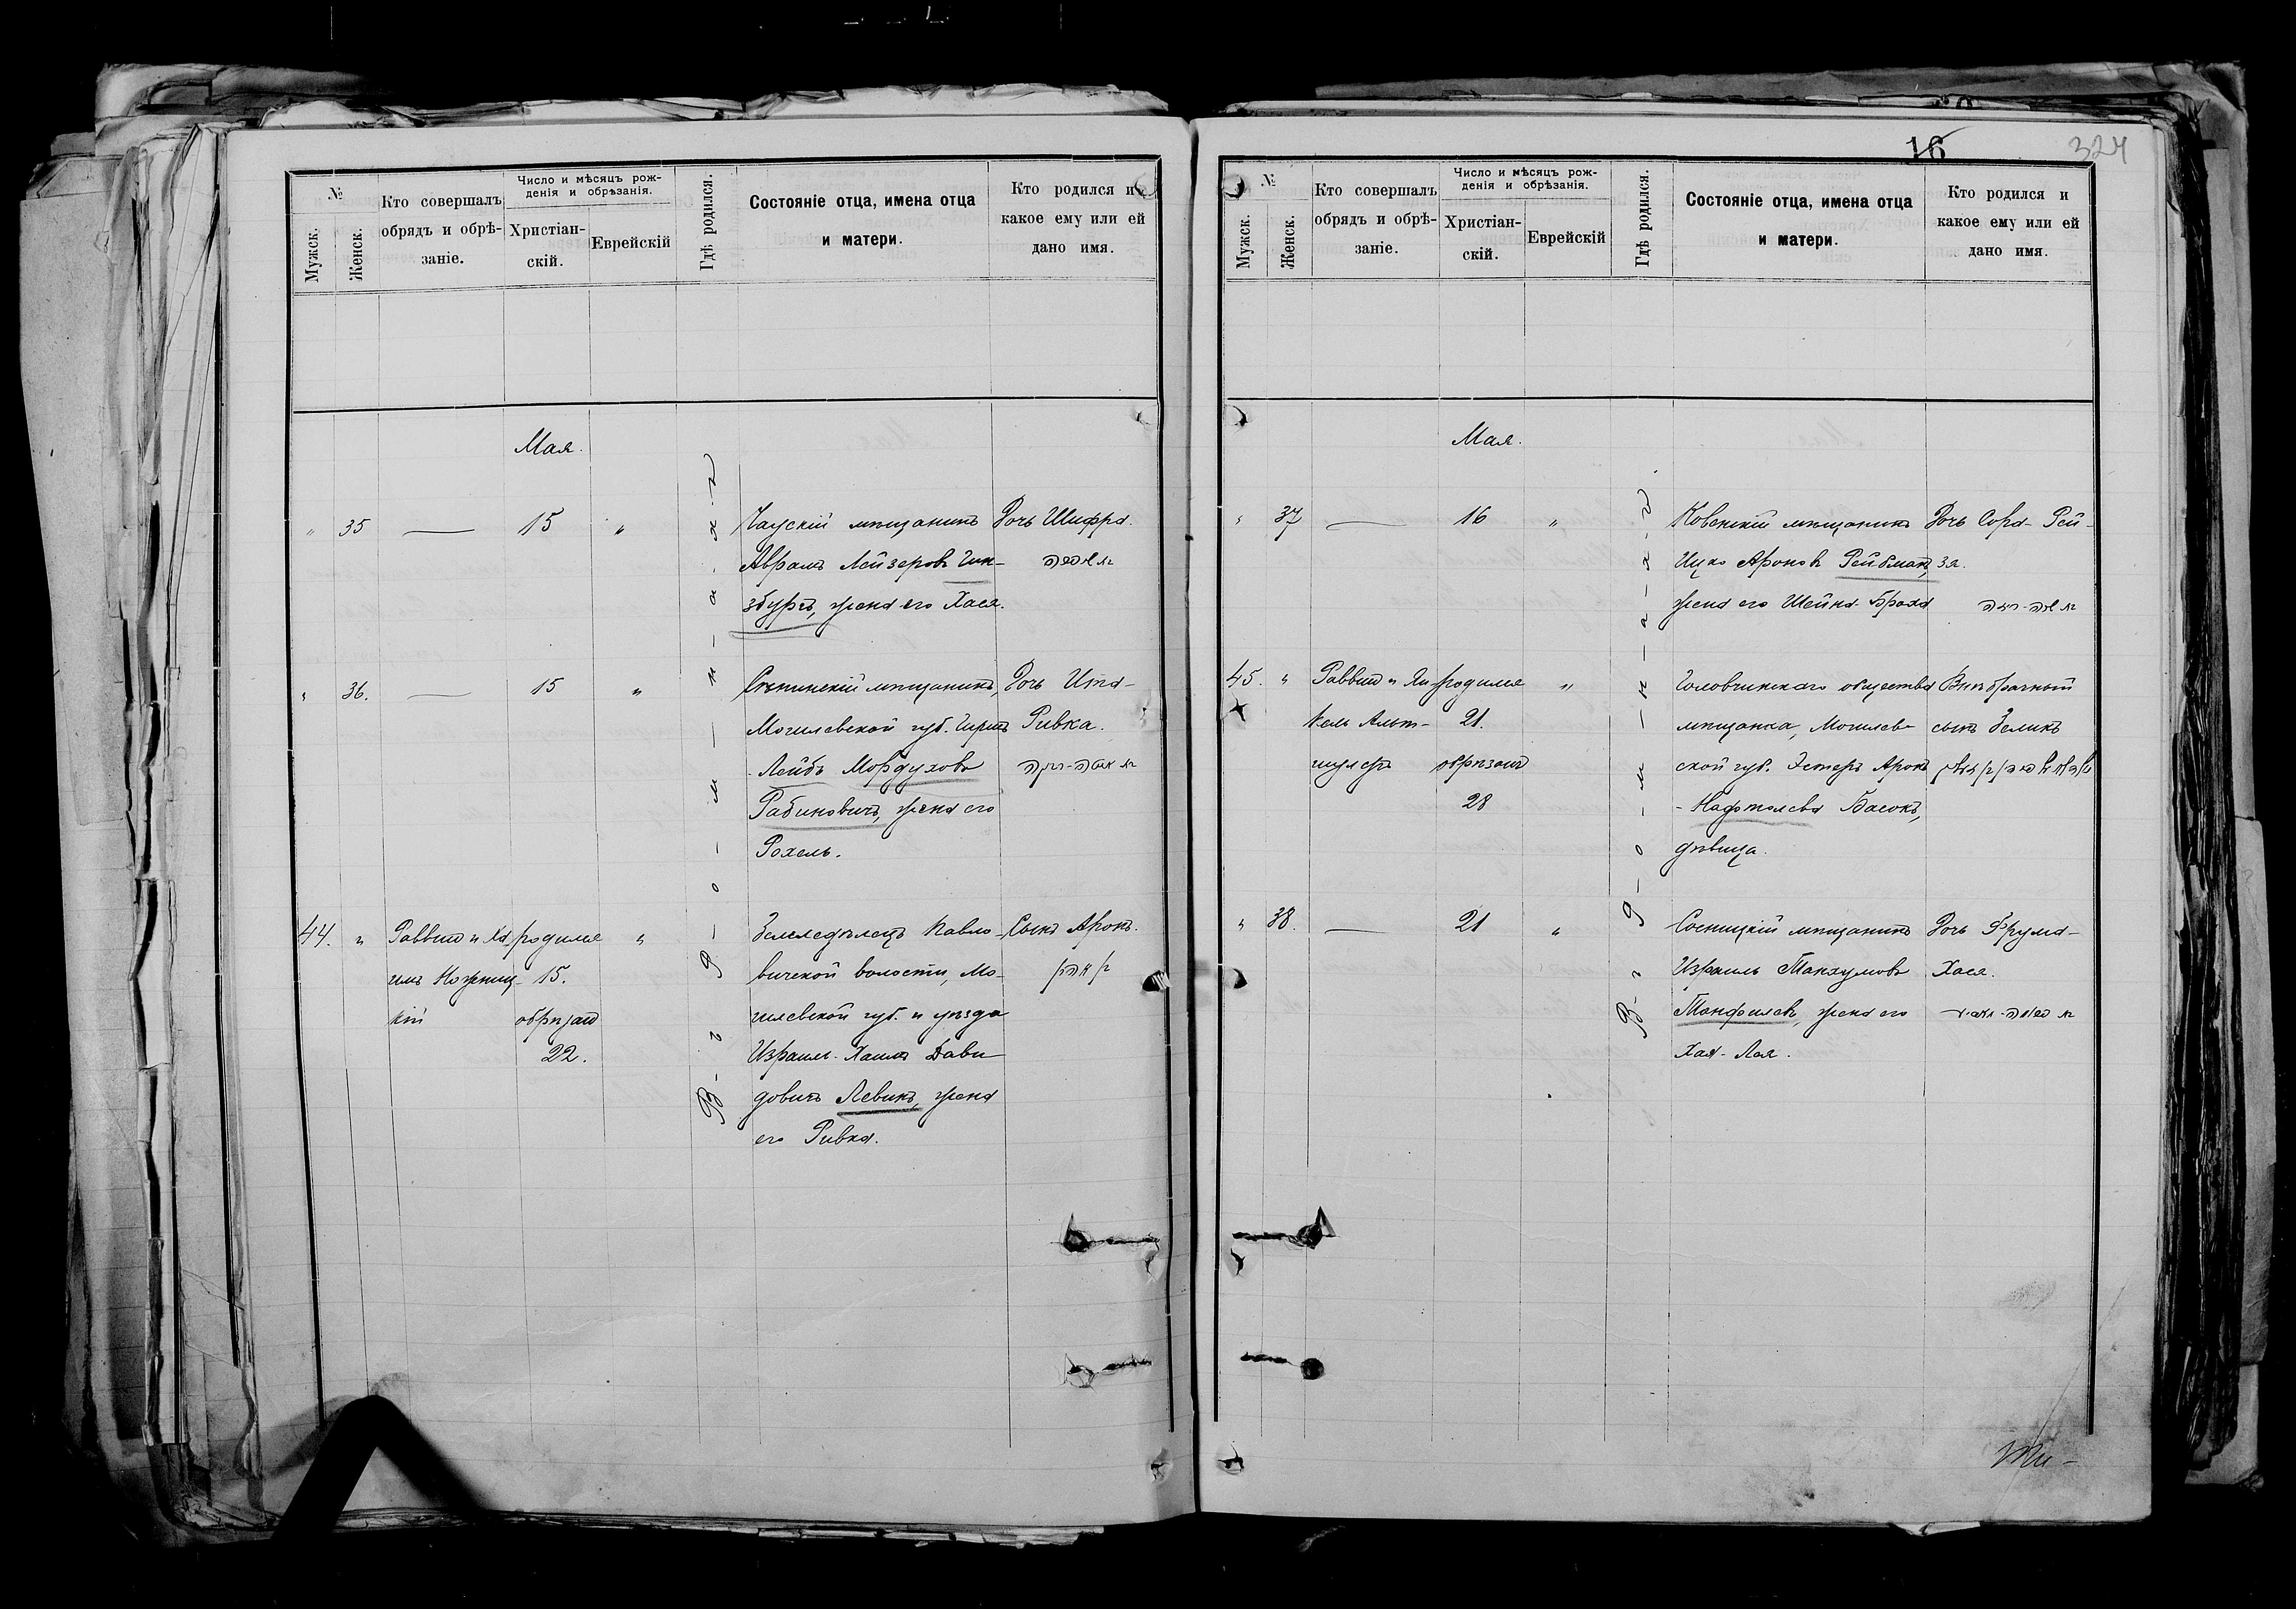 16
324
№
Мужск.
Женск.
Кто совершалъ
обрядъ и обрѣ-
заніе.
Число и мѣсяцъ рож-
денія и обрѣзанія.
Христіан-
скій.
Еврейскій
Гдѣ родился.
Состояніе отца, имена отца
и матери.
Кто родился и
какое ему или ей
дано имя.
Мая.
В - г о р о
" 35 — 15 "
Чаускій мѣщанинъ
Абрамъ Лейзеровъ Гин-
збургъ, жена его Хася.
Дочь Шифра.
שיפרה
" 36. — 15 "
мѣщанинъ,
Могилевской губ. Гиршъ
-Лейбъ Мордуховъ
Рабиновичъ, жена его
Рохель.
Дочь Ита-
Ривка.
44. " Раввин и Ха
имъ Ножниц-
кій
родился
15.
обрѣзан
22.
"
Земледѣлецъ Павло-
вичской волости, Мо-
гилевской губ. и уѣзда
Израиль-Хаимъ Дави-
довичъ Левинъ, жена
его Ривка.
Сынъ Аронъ.
№
Мужск.
Женск.
Кто совершалъ
обрядъ и обрѣ-
заніе.
Число и мѣсяцъ рож-
денія и обрѣзанія.
Христіан-
скій.
Еврейскій
Гдѣ родился.
Состояніе отца, имена отца
и матери.
Кто родился и
какое ему или ей
дано имя.
Мая.
" 37 — 16 "
Ковенскій мѣщанинъ
Ицко Ароновъ Рейбманъ,
жена его Шейна-Браха
Дочь Сора-Рей-
зя.
45. " Раввин и Ян-
кель Альт-
шулеръ
родился
21.
обрѣзан
28
"
Головчинскаго общества
мѣщанка, Могилев-
ской губ. Эстеръ Арон
-Нафтолева Басокъ,
дѣвица.
Внѣбрачный
сынъ Зеликъ
" 38. — 21 "
Сосницкій мѣщанинъ
Израиль Танхумовъ
Танфилевъ, жена его
Хая-Лея.
Дочь Фрума-
Хася.